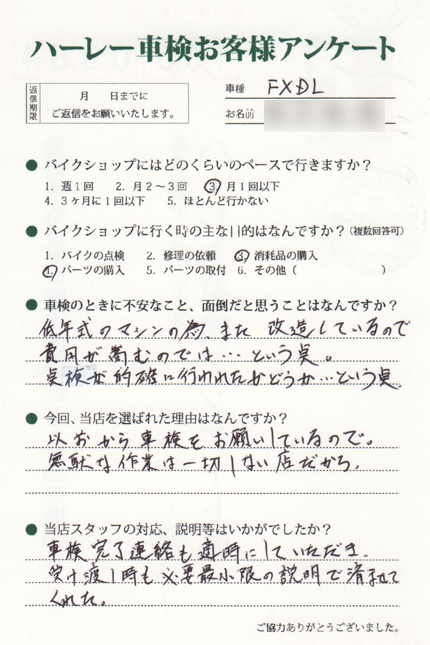 ハーレー車検お客様アンケート
返信期限
月 日までに
ご返信をお願いいたします。
車種 FXDL
お名前
● バイクショップにはどのくらいのペースで行きますか?
1. 週1回 2. 月2~3回 3. 月1回以下
4. 3ヶ月に1回以下 5. ほとんど行かない
● バイクショップに行く時の主な目的はなんですか?(複数回答可)
1. バイクの点検 2. 修理の依頼 3. 消耗品の購入
4. パーツの購入 5. パーツの取付 6. その他( )
● 車検のときに不安なこと、面倒だと思うことはなんですか?
低年式のマシンの為、また 改造しているので
費用が嵩むのでは…という点。
点検が的確に行われたかどうか…という点。
● 今回、当店を選ばれた理由はなんですか?
以前から車検をお願いしているので。
無駄な作業は一切しない店だから。
● 当店スタッフの対応、説明等はいかがでしたか?
車検完了連絡も適時にしていただき、
受け渡し時も必要最小限の説明で済ませて
くれた。
ご協力ありがとうございました。